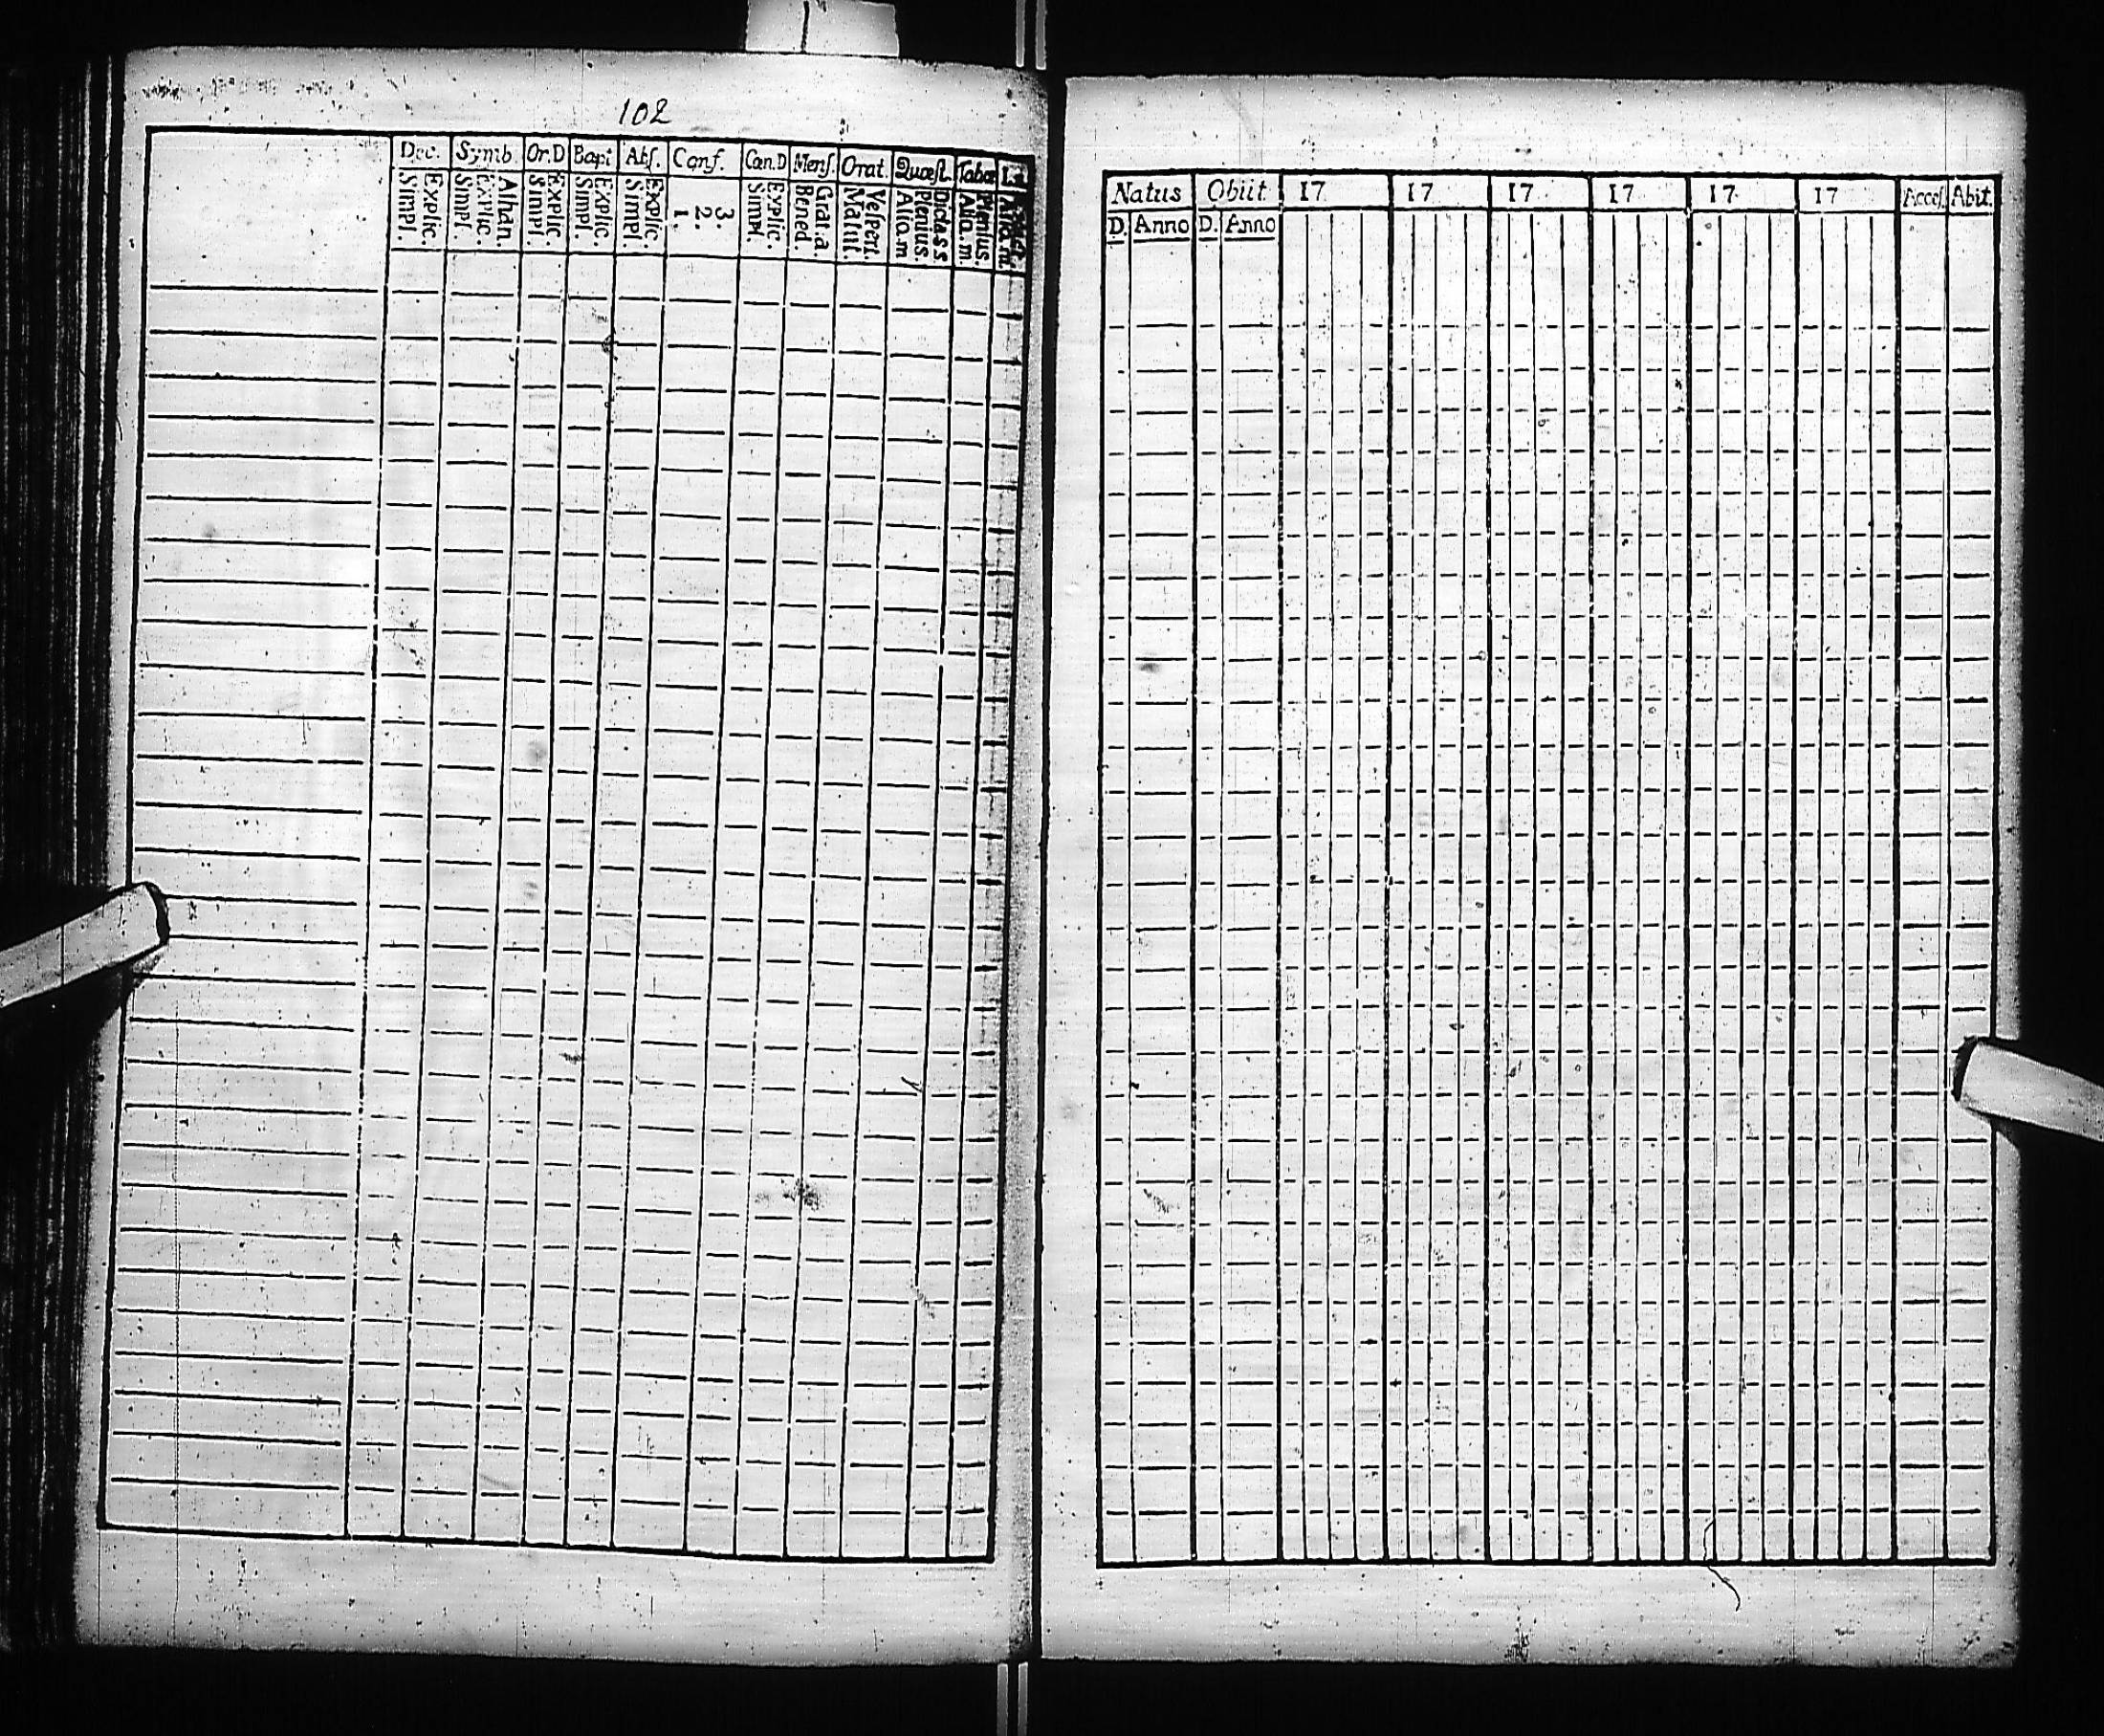 102
Dec. Symb. Or.D Bapt Abs. Conf. Can.D Mens. Orat. Quæst. Tabæ
Explic. Simpl. Athan. Explic. Simpl. Explic. Simpl. Explic. Simpl. Explic. Simpl. 3. 2. 1. Explic. Simpl. Grat.a. Bened. Vespert. Matut. Dictass Plenius. Aliq.m Plenius. Aliq.m. Aliq.m.
Natus Obiit. 17 17 17 17 17 17 Access. Abiit.
D. Anno D. Anno